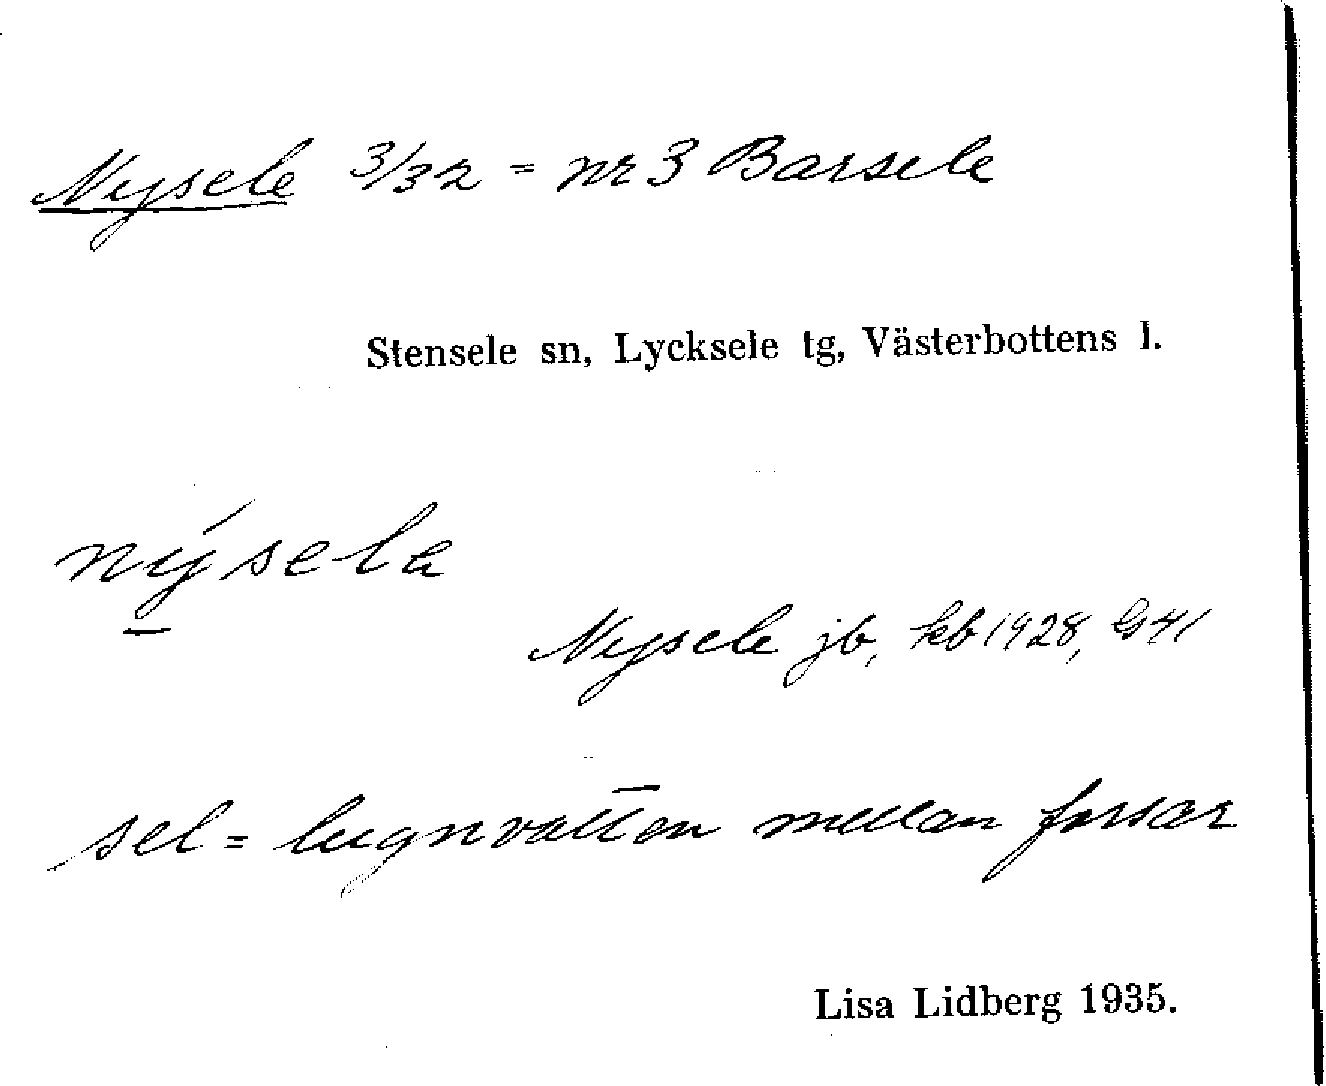 Nysele 3/32 = nr 3 Barsele
Stensele sn, Lycksele tg, Västerbottens l.
nýsela
Nysele jb, kb 1928, G41
sel = lugnvatten mellan forsar
Lisa Lidberg 1935.